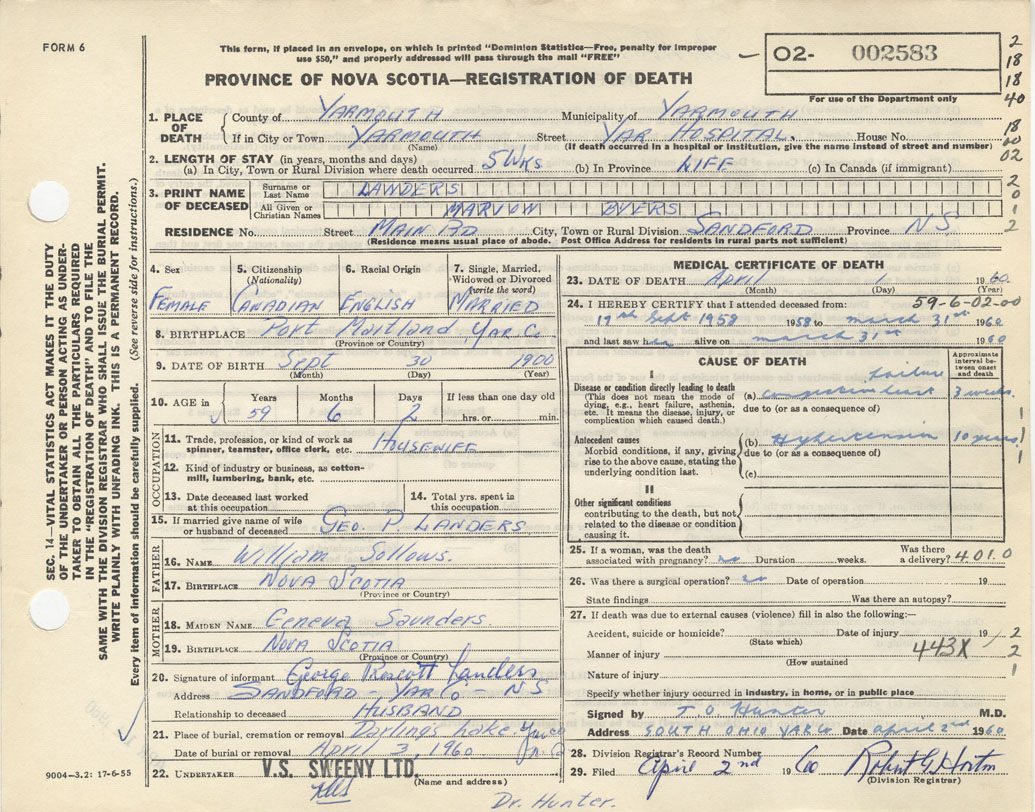 FORM 6
This form, if placed in an envelope, on which is printed "Dominion Statistics—Free, penalty for improper
use $50," and properly addressed will pass through the mail "FREE"
02- 002583
For use of the Department only
PROVINCE OF NOVA SCOTIA—REGISTRATION OF DEATH
2
18
18
40
18
00
02
2
0
1
2
1. PLACE OF DEATH
County of YARMOUTH Municipality of YARMOUTH
If in City or Town YARMOUTH Street YAR HOSPITAL. House No.
(Name) (If death occurred in a hospital or institution, give the name instead of street and number)
2. LENGTH OF STAY (in years, months and days)
(a) In City, Town or Rural Division where death occurred 5 WKS (b) In Province LIFE (c) In Canada (if immigrant)
3. PRINT NAME OF DECEASED
Surname or Last Name LANDERS
All Given or Christian Names MARION BYERS
RESIDENCE No. Street MAIN RD City, Town or Rural Division SANDFORD Province NS
(Residence means usual place of abode. Post Office Address for residents in rural parts not sufficient)
4. Sex FEMALE
5. Citizenship (Nationality) CANADIAN
6. Racial Origin ENGLISH
7. Single, Married, Widowed or Divorced (write the word) MARRIED
8. BIRTHPLACE Port Maitland Yar. Co.
(Province or Country)
9. DATE OF BIRTH Sept 30 1900
(Month) (Day) (Year)
10. AGE in Years 59 Months 6 Days 2 If less than one day old hrs. or min.
OCCUPATION
11. Trade, profession, or kind of work as spinner, teamster, office clerk, etc. HOUSEWIFE
12. Kind of industry or business, as cotton-mill, lumbering, bank, etc.
13. Date deceased last worked at this occupation
14. Total yrs. spent in this occupation
15. If married give name of wife or husband of deceased GEO. P. LANDERS
FATHER
16. NAME William Sollows.
17. BIRTHPLACE NOVA SCOTIA
(Province or Country)
MOTHER
18. MAIDEN NAME Geneva Saunders.
19. BIRTHPLACE NOVA SCOTIA
(Province or Country)
20. Signature of informant George Prescott Landers
Address SANDFORD - YAR CO - NS
Relationship to deceased HUSBAND
21. Place of burial, cremation or removal Darlings Lake. Yar. Co
Date of burial or removal April 3, 1960
22. UNDERTAKER V.S. SWEENY LTD.
(Name and address)
MEDICAL CERTIFICATE OF DEATH
23. DATE OF DEATH April 1 1960
(Month) (Day) (Year)
59-6-02-00
24. I HEREBY CERTIFY that I attended deceased from:
19th Sept 1958 1958 to march 31st 1960
and last saw her alive on march 31st 1960
CAUSE OF DEATH
Approximate interval between onset and death
I
Disease or condition directly leading to death
(This does not mean the mode of dying, e.g., heart failure, asthenia, etc. It means the disease, injury, or complication which caused death.)
(a) congestive heart failure 3 weeks
due to (or as a consequence of)
Antecedent causes
Morbid conditions, if any, giving rise to the above cause, stating the underlying condition last.
(b) Hypertension 10 years
due to (or as a consequence of)
(c)
II
Other significant conditions
contributing to the death, but not related to the disease or condition causing it.
1
1
1
25. If a woman, was the death associated with pregnancy? no Duration weeks. Was there a delivery? 401.0
26. Was there a surgical operation? no Date of operation 19
State findings Was there an autopsy?
27. If death was due to external causes (violence) fill in also the following:—
Accident, suicide or homicide? Date of injury 19
(State which)
Manner of injury 443X
(How sustained)
Nature of injury
2
2
1
Specify whether injury occurred in industry, in home, or in public place
Signed by T O Hunter M.D.
Address SOUTH OHIO YAR CO Date april 2nd 1960
28. Division Registrar's Record Number
29. Filed April 2nd 1960 Robert G Horton
(Division Registrar)
Dr. Hunter.
SEC. 14—VITAL STATISTICS ACT MAKES IT THE DUTY
OF THE UNDERTAKER OR PERSON ACTING AS UNDER-
TAKER TO OBTAIN ALL THE PARTICULARS REQUIRED
IN THE "REGISTRATION OF DEATH" AND TO FILE THE
SAME WITH THE DIVISION REGISTRAR WHO SHALL ISSUE THE BURIAL PERMIT.
WRITE PLAINLY WITH UNFADING INK. THIS IS A PERMANENT RECORD.
Every item of information should be carefully supplied. (See reverse side for instructions.)
9004—3.2: 17-6-55